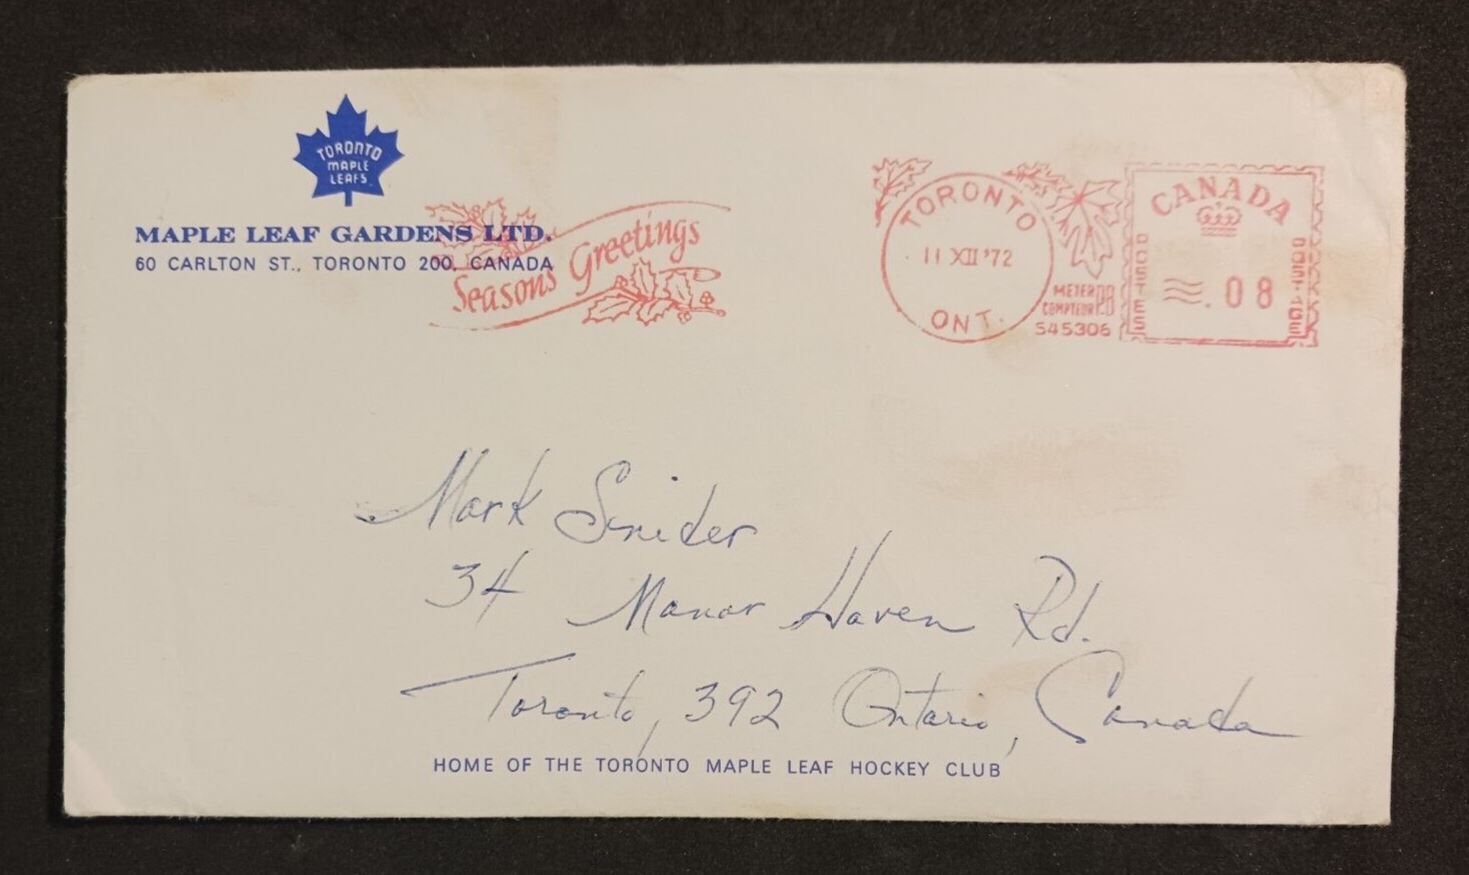 TORONTO
MAPLE
LEAFS
MAPLE LEAF GARDENS LTD.
60 CARLTON ST., TORONTO 200, CANADA
Seasons Greetings
TORONTO
11 XII '72
ONT.
METER PB
COMPTEUR
545306
CANADA
POSTES
POSTAGE
.08
Mark Snider
34 Manor Haven Rd.
Toronto, 392 Ontario, Canada
HOME OF THE TORONTO MAPLE LEAF HOCKEY CLUB